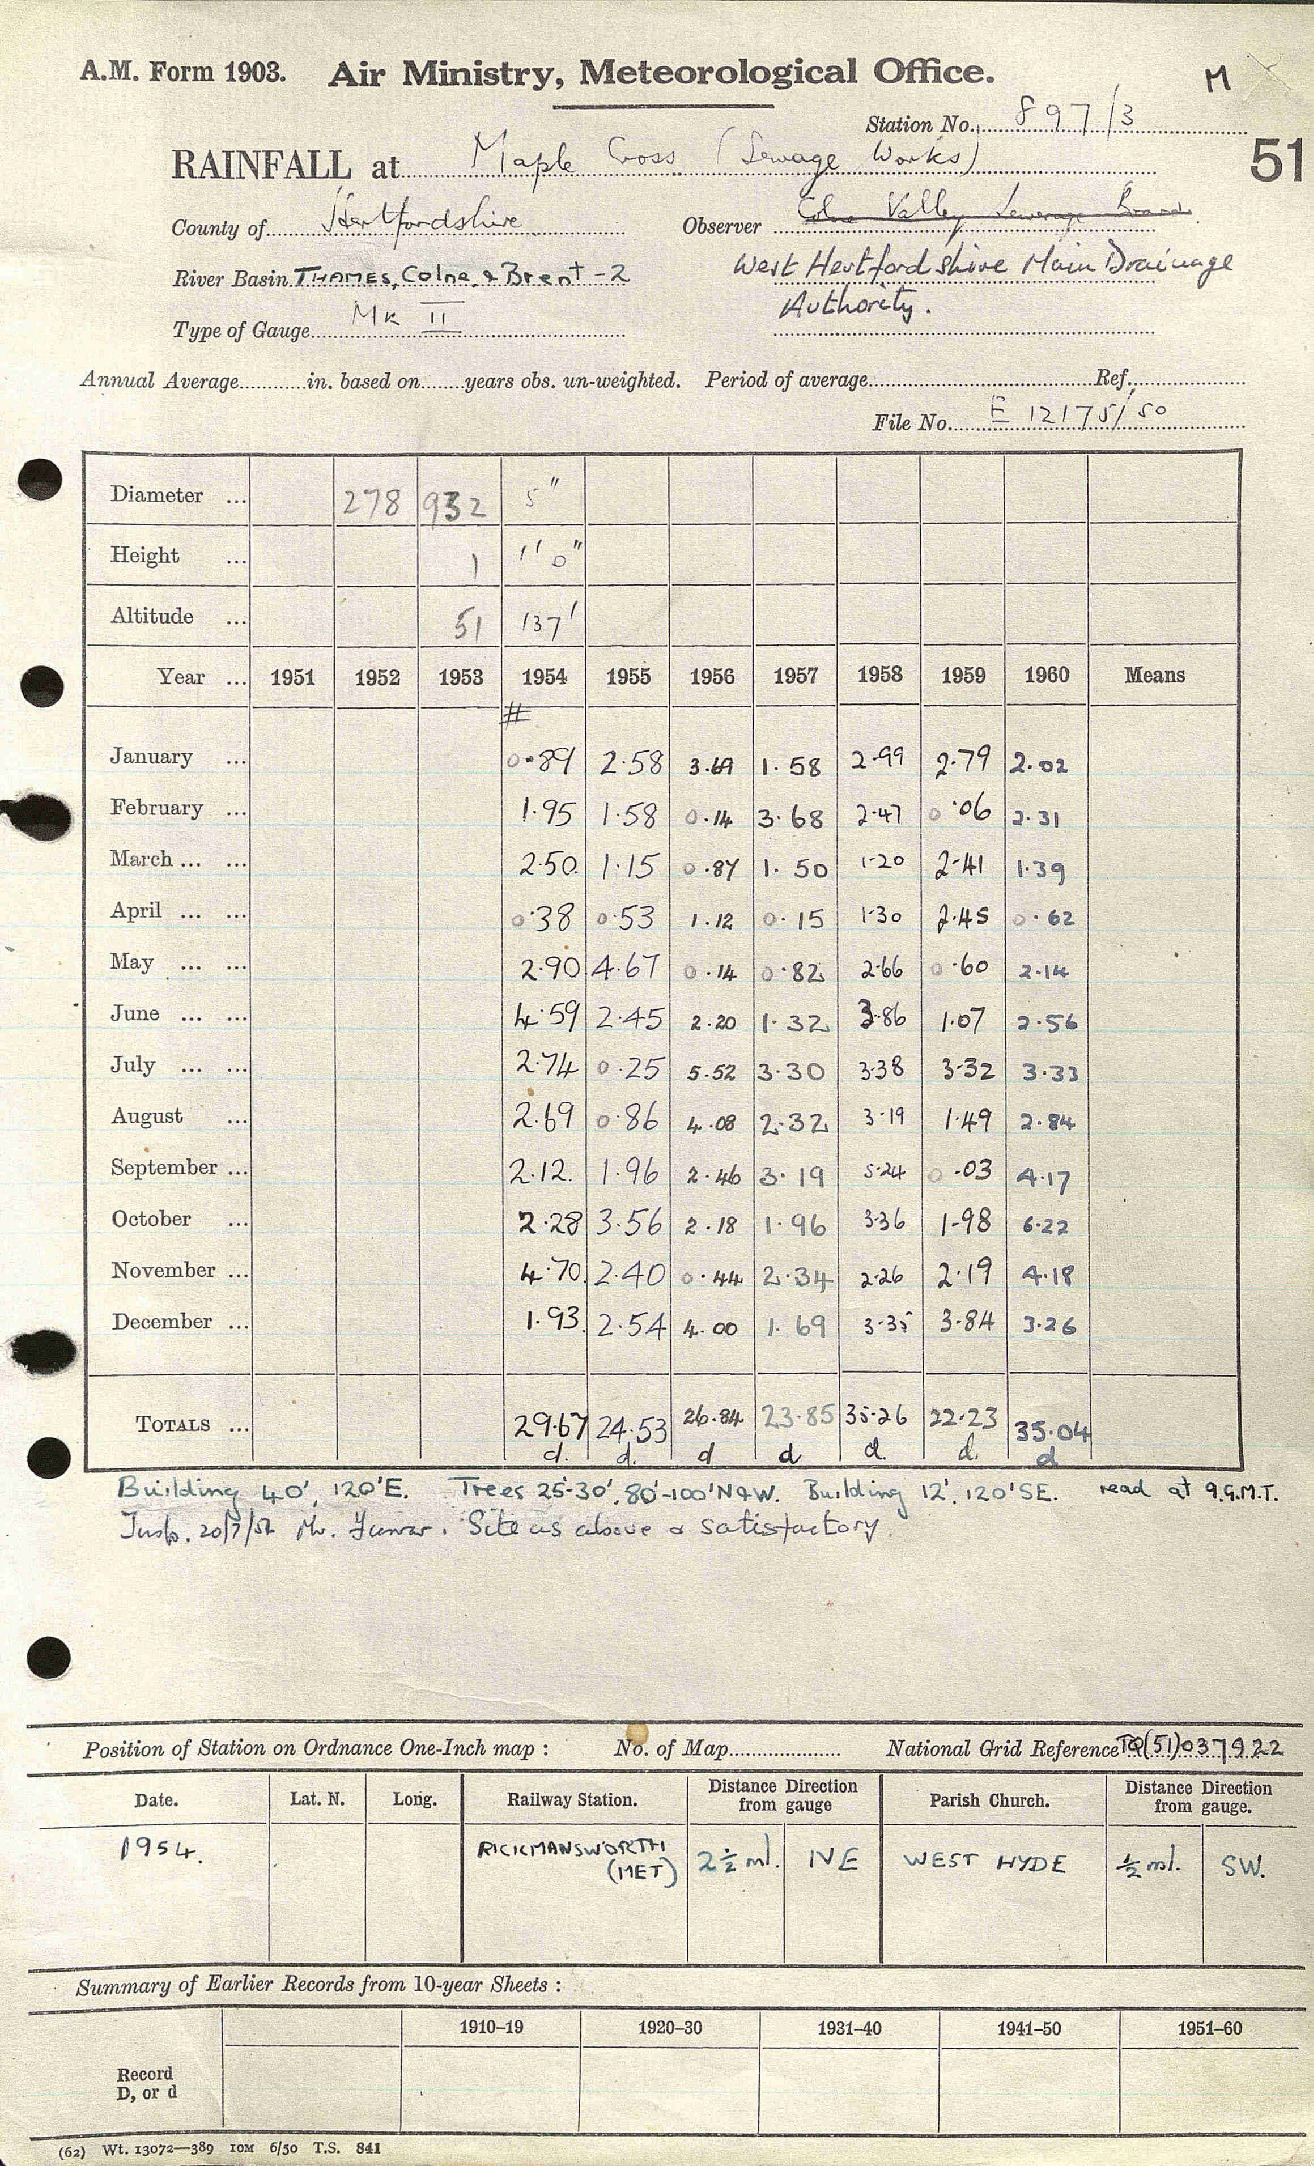 A.M. Form 1903. Air Ministry, Meteorological Office. M
Station No. 897/3
RAINFALL at Maple Cross (Sewage Works) 51
County of Hertfordshire Observer Colne Valley Sewerage Board
River Basin THAMES, Colne, & Brent-2 West Hertfordshire Main Drainage
Authority.
Type of Gauge Mk II
Annual Average in. based on years obs. un-weighted. Period of average Ref.
File No. E 12175/50
Diameter ... 278 932 5"
Height ... 1 1'0"
Altitude ... 51 137'
Year ... 1951 1952 1953 1954 1955 1956 1957 1958 1959 1960 Means
#
January ... 0.89 2.58 3.69 1.58 2.99 2.79 2.02
February ... 1.95 1.58 0.14 3.68 2.47 0.06 2.31
March ... ... 2.50 1.15 0.87 1.50 1.20 2.41 1.39
April ... ... 0.38 0.53 1.12 0.15 1.30 2.45 0.62
May ... ... 2.90 4.67 0.14 0.82 2.66 0.60 2.14
June ... ... 4.59 2.45 2.20 1.32 3.86 1.07 2.56
July ... ... 2.74 0.25 5.52 3.30 3.38 3.32 3.33
August ... 2.69 0.86 4.08 2.32 3.19 1.49 2.84
September ... 2.12. 1.96 2.46 3.19 5.24 0.03 4.17
October ... 2.28 3.56 2.18 1.96 3.36 1.98 6.22
November ... 4.70 2.40 0.44 2.34 2.26 2.19 4.18
December ... 1.93 2.54 4.00 1.69 3.35 3.84 3.26
TOTALS ... 29.67 24.53 26.84 23.85 35.26 22.23 35.04
d. d. d d d. d. d
Building 40', 120'E. Trees 25'-30', 80'-100'N&W. Building 12', 120'SE. read at 9.G.M.T.
Insp. 20/7/5 Mr. Site as above & satisfactory
Position of Station on Ordnance One-Inch map : No. of Map National Grid Reference TQ(51)037922
Date. Lat. N. Long. Railway Station. Distance Direction from gauge Parish Church. Distance Direction from gauge.
1954. RICKMANSWORTH (MET) 2½ ml. NE WEST HYDE ½ ml. SW.
Summary of Earlier Records from 10-year Sheets :
1910–19 1920–30 1931–40 1941–50 1951–60
Record
D, or d
(62) Wt. 13072—389 10M 6/50 T.S. 841